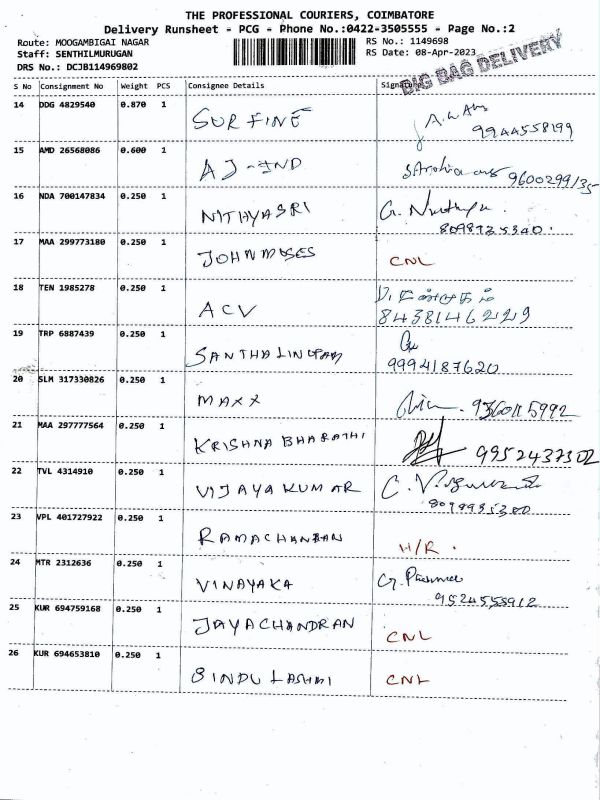 THE PROFESSIONAL COURIERS, COIMBATORE
Delivery Runsheet - PCG - Phone No.:0422-3505555 - Page No.:2
Route: MOOGAMBIGAI NAGAR RS No.: 1149698
Staff: SENTHILMURUGAN RS Date: 08-Apr-2023
DRS No.: DCJB114969802
BIG BAG DELIVERY
S No Consignment No Weight PCS Consignee Details Signature
14 DDG 4829540 0.870 1 SURFINE
9944558199
15 AMD 26568086 0.600 1 AJ-IND
9600299135
16 NDA 700147834 0.250 1 NITHYASRI G. Nithya.
8098725340.
17 MAA 299773180 0.250 1 JOHNMOSES CNL
18 TEN 1985278 0.250 1 ACV
8438146229
19 TRP 6887439 0.250 1
9994187620
20 SLM 317330826 0.250 1 MAXX 9360115992
21 MAA 297777564 0.250 1 KRISHNA BHARATHI 9952437302
22 TVL 4314910 0.250 1 VIJAYAKUMAR
8099935380
23 VPL 401727922 0.250 1 RAMACHANBAN H/R.
24 MTR 2312636 0.250 1 VINAYAKA
9524555912
25 KUR 694759168 0.250 1 JAYACHANDRAN CNL
26 KUR 694653810 0.250 1 BINDU CNL